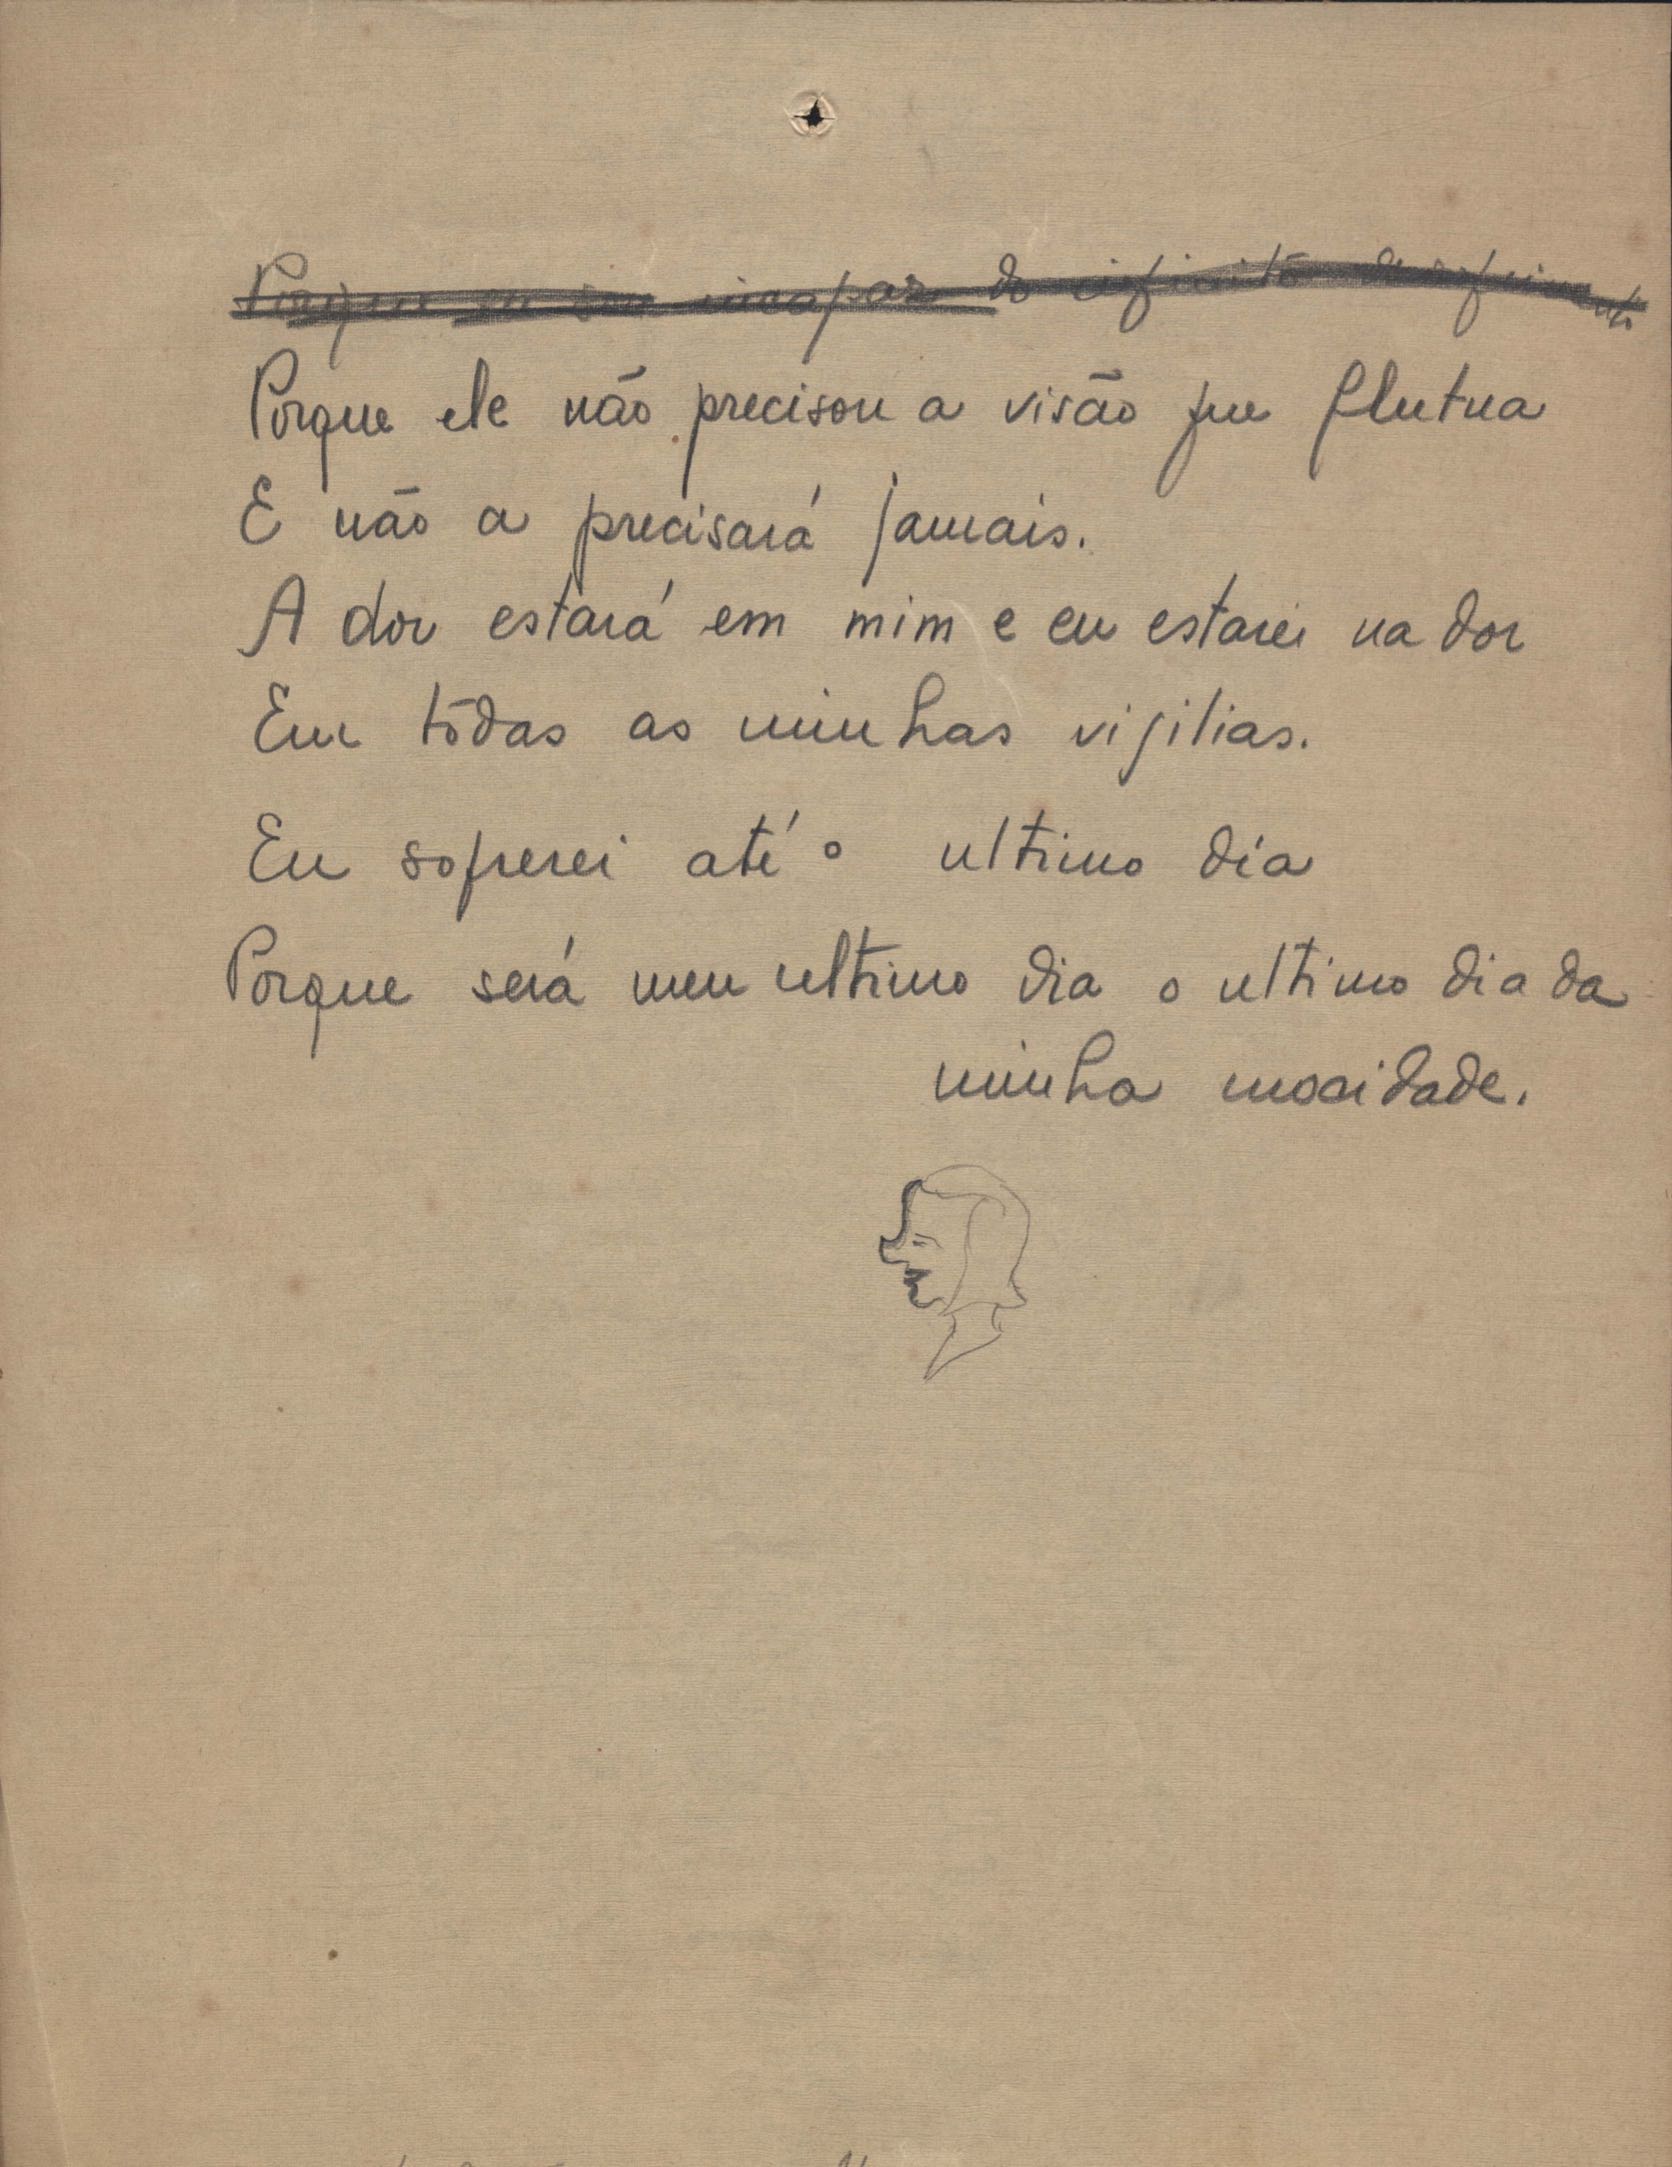 Porque eu sou incapaz do infinito
Porque ele não precisou a visão que flutua
E não a precisará jamais.
A dor estará em mim e eu estarei na dor
Em tōdas as minhas vigilias.
Eu sofrerei até o ultimo dia
Porque será meu ultimo dia o ultimo dia da
minha mocidade.